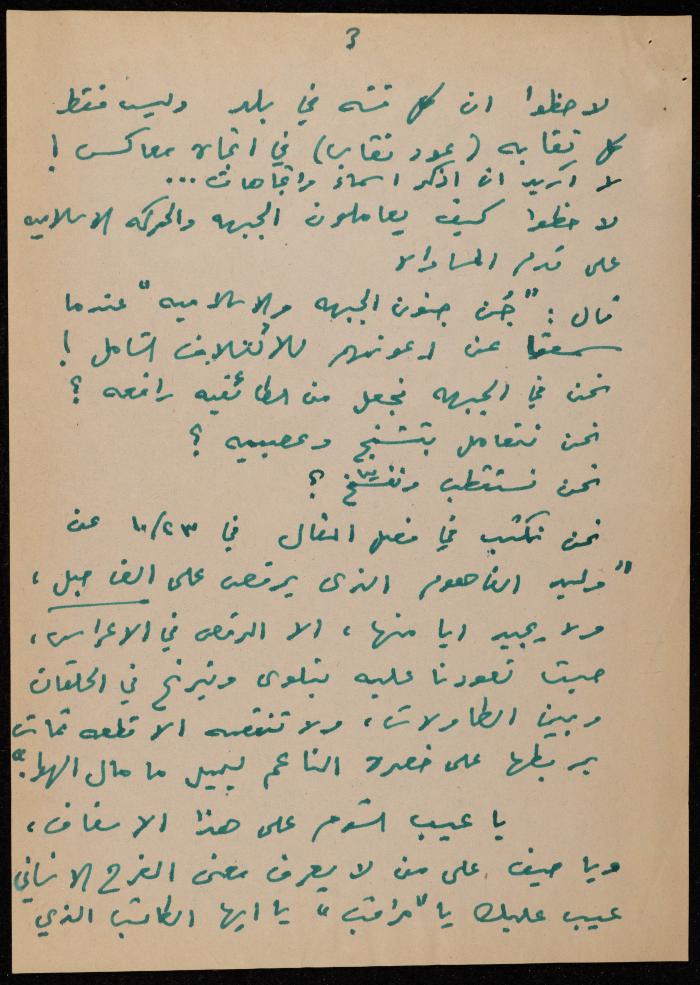 3
لاحظوا ان كل فئه في بلد وليس فقط
كل نقابه (عمود نقابي) في اتجاه معاكس !
لا اريد ان اذكر اسماء واتجاهات ...
لاحظوا كيف يعاملون الجبهه والحركه الاسلاميه
على قدم المساواه
قال : "جُن جنون الجبهه والاسلاميه" عندما
سمعتا عن دعوتهم للائتلاف الشامل !
نحن في الجبهه نجعل من الطائفيه رافعه ؟
نحن نتعامل بتشنج وعصبيه ؟
نحن نستقطب ونفسخ ؟
نحن نكتب في فصل المقال في ١٠/٢٣ عن
"وليد الفاهوم الذى يرقص على الف حبل ،
ولا يجيد ايا منها ، الا الرقص في الاعراس ،
حيث تعودنا عليه يتلوى ويترنح في الحلقات
وبين الطاولات ، ولا تنقصه الا قطعه قماش
يربطها على خصره الناعم ليميل ما مال الهوا".
يا عيب الشوم على هذا الاسفاف ،
ويا حيف على من لا يعرف معنى الفرح الانساني
عيب عليك يا "مراقب" يا ايها الكاتب الذي